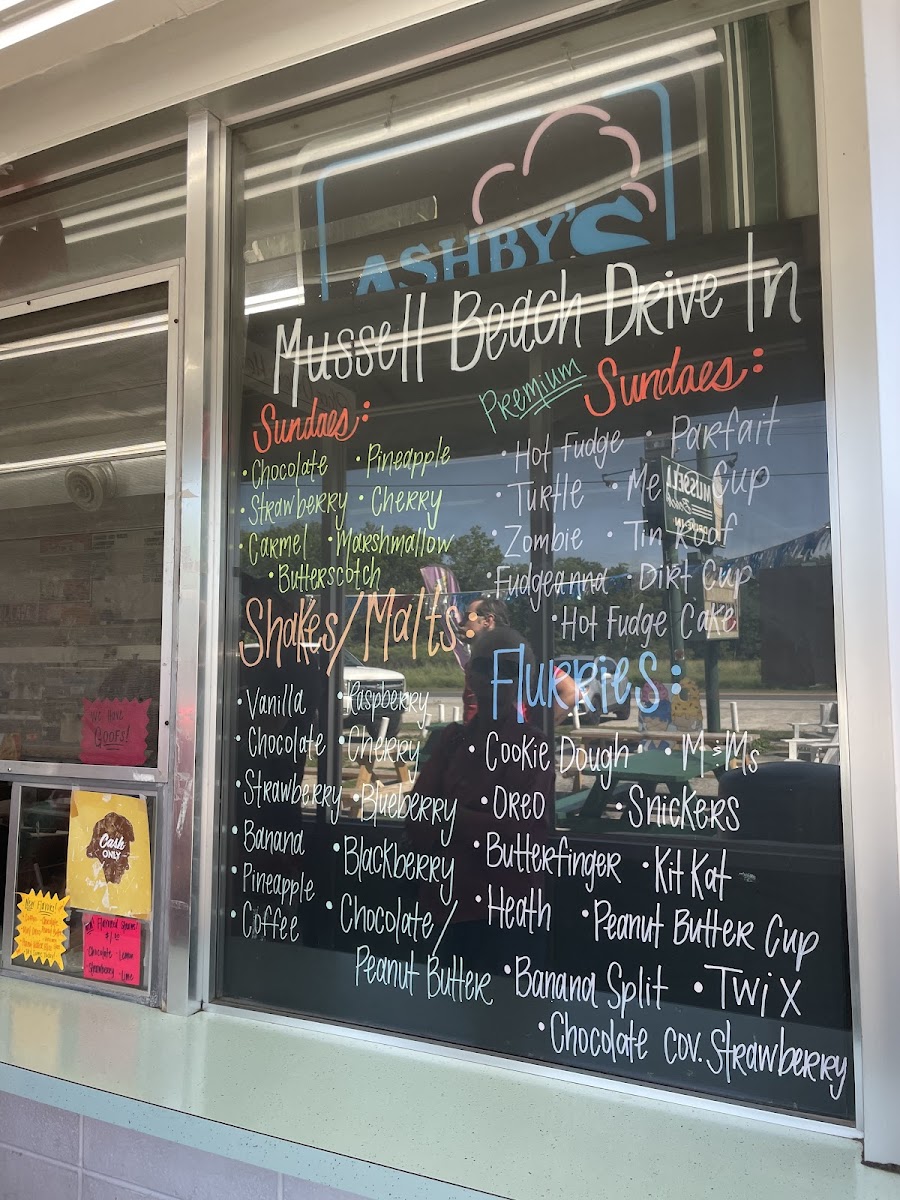 ASHBY'S
Mussell Beach Drive In
Sundaes:
• Chocolate • Pineapple
• Strawberry • Cherry
• Carmel • Marshmallow
• Butterscotch
Premium Sundaes:
• Hot Fudge • Parfait
• Turtle • Cup
• Zombie • Tin Roof
• Fudgeanna • Dirt Cup
• Hot Fudge Cake
Shakes/Malts:
• Vanilla • Raspberry
• Chocolate • Cherry
• Strawberry • Blueberry
• Banana • Blackberry
• Pineapple • Chocolate/
• Coffee Peanut Butter
Flurries:
• Cookie Dough • M&Ms
• Oreo • Snickers
• Butterfinger • Kit Kat
• Heath • Peanut Butter Cup
• Banana Split • Twix
• Chocolate Cov. Strawberry
MUSSELL
We Have
Goofs!
Cash
ONLY
Flavored
Chocolate Lemon
Strawberry Lime